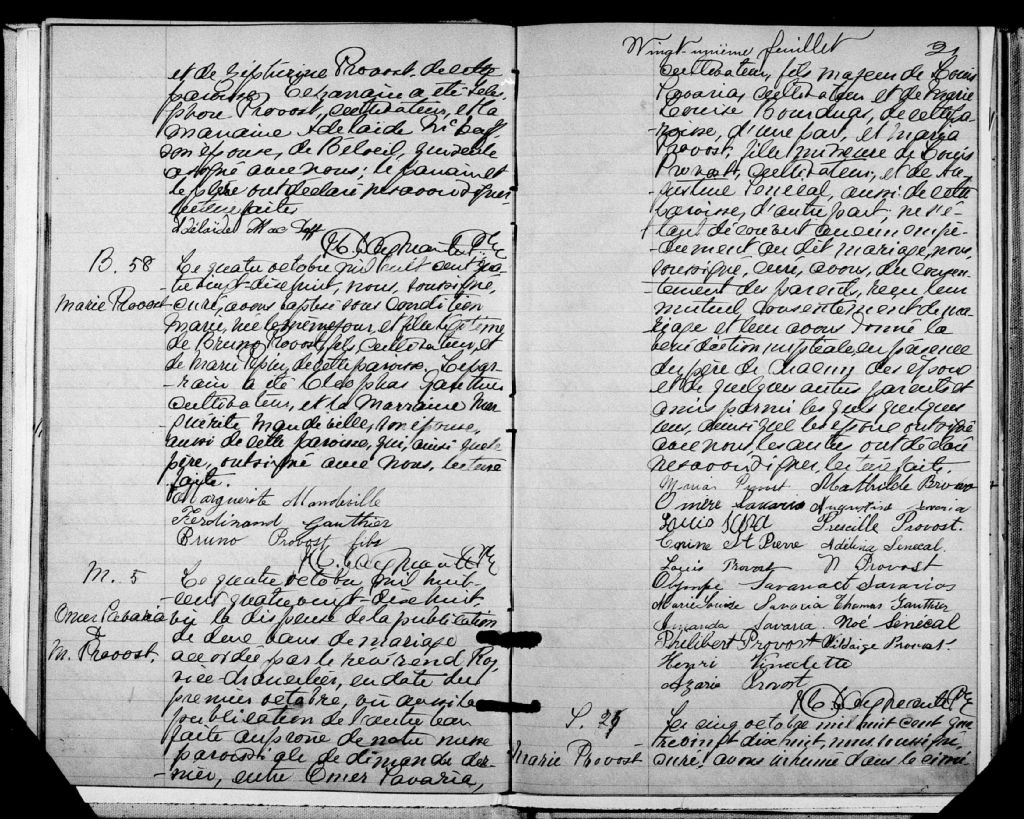 et de Zéphirine Provost, de cette
paroisse. Le parrain a été Télés-
phore Provost, cultivateur, et la
marraine Adélaïde McDuff
son épouse, de Beloeil, qui seule
a signé avec nous; le parrain et
le père ont déclaré ne savoir signer
lecture faite.
Adélaïde Mac Duff
B. 58
Marie Provost
Le quatre octobre mil huit cent qua-
tre vingt-dix-huit, nous, soussigné,
curé, avons baptisé sous condition
Marie, née le même jour, et fille légitime
de Bruno Provost, fils, cultivateur, et
de Marie Pépin, de cette paroisse. Le par-
rain a été Cléophas Gauthier
cultivateur, et la Marraine Mar-
guerite Mandeville, son épouse,
aussi de cette paroisse, qui, ainsi que le
père, ont signé avec nous, lecture
faite.
Marguerite Mandeville
Ferdinand Gauthier
Bruno Provost fils
M. 5
Omer Savaria
&
M. Provost.
Le quatre octobre mil huit-
cent quatre vingt-dix-huit,
vu la dispense de la publication
de deux bans de mariage
accordée par le révérend
en date du
premier octobre, vu aussi la
publication de l'autre ban
faite au prône de notre messe
paroissiale de dimanche der-
nier, entre Omer Savaria,
Vingt-unième feuillet
21
cultivateur, fils majeur de Louis
Savaria, cultivateur et de Marie
Louise de cette pa-
roisse, d'une part, et Maria
Provost, fille mineure de Louis
Provost, cultivateur, et de Au-
gustine Senécal, aussi de cette
paroisse, d'autre part; ne s'é-
tant découvert aucun empê-
chement au dit mariage, nous,
soussigné, curé, avons, du consen-
tement des parents, reçu leur
mutuel consentement de ma-
riage et leur avons donné la
bénédiction nuptiale en présence
du père de chacun des époux
et de quelques autres parents et
amis parmi lesquels quelques
uns, ainsi que les époux ont signé
avec nous, les autres ont déclaré
ne savoir signer, lecture faite.
Maria Provost Mathilde Provost
Omère Savaria Augustine Savaria
Louis Priscille Provost.
Corine St Pierre Adélina Senecal.
Louis Provost N Provost
Olympe Savaria
Marie Louise Savaria Thomas Gauthier
Amanda Savaria Noé Senecal
Philibert Provost Provost
Henri Vinelette
Azarie Provost
S. 25
Marie Provost
Le cinq octobre mil huit cent qua-
tre vingt dix-huit, nous soussigné,
curé, avons inhumé dans le cime-